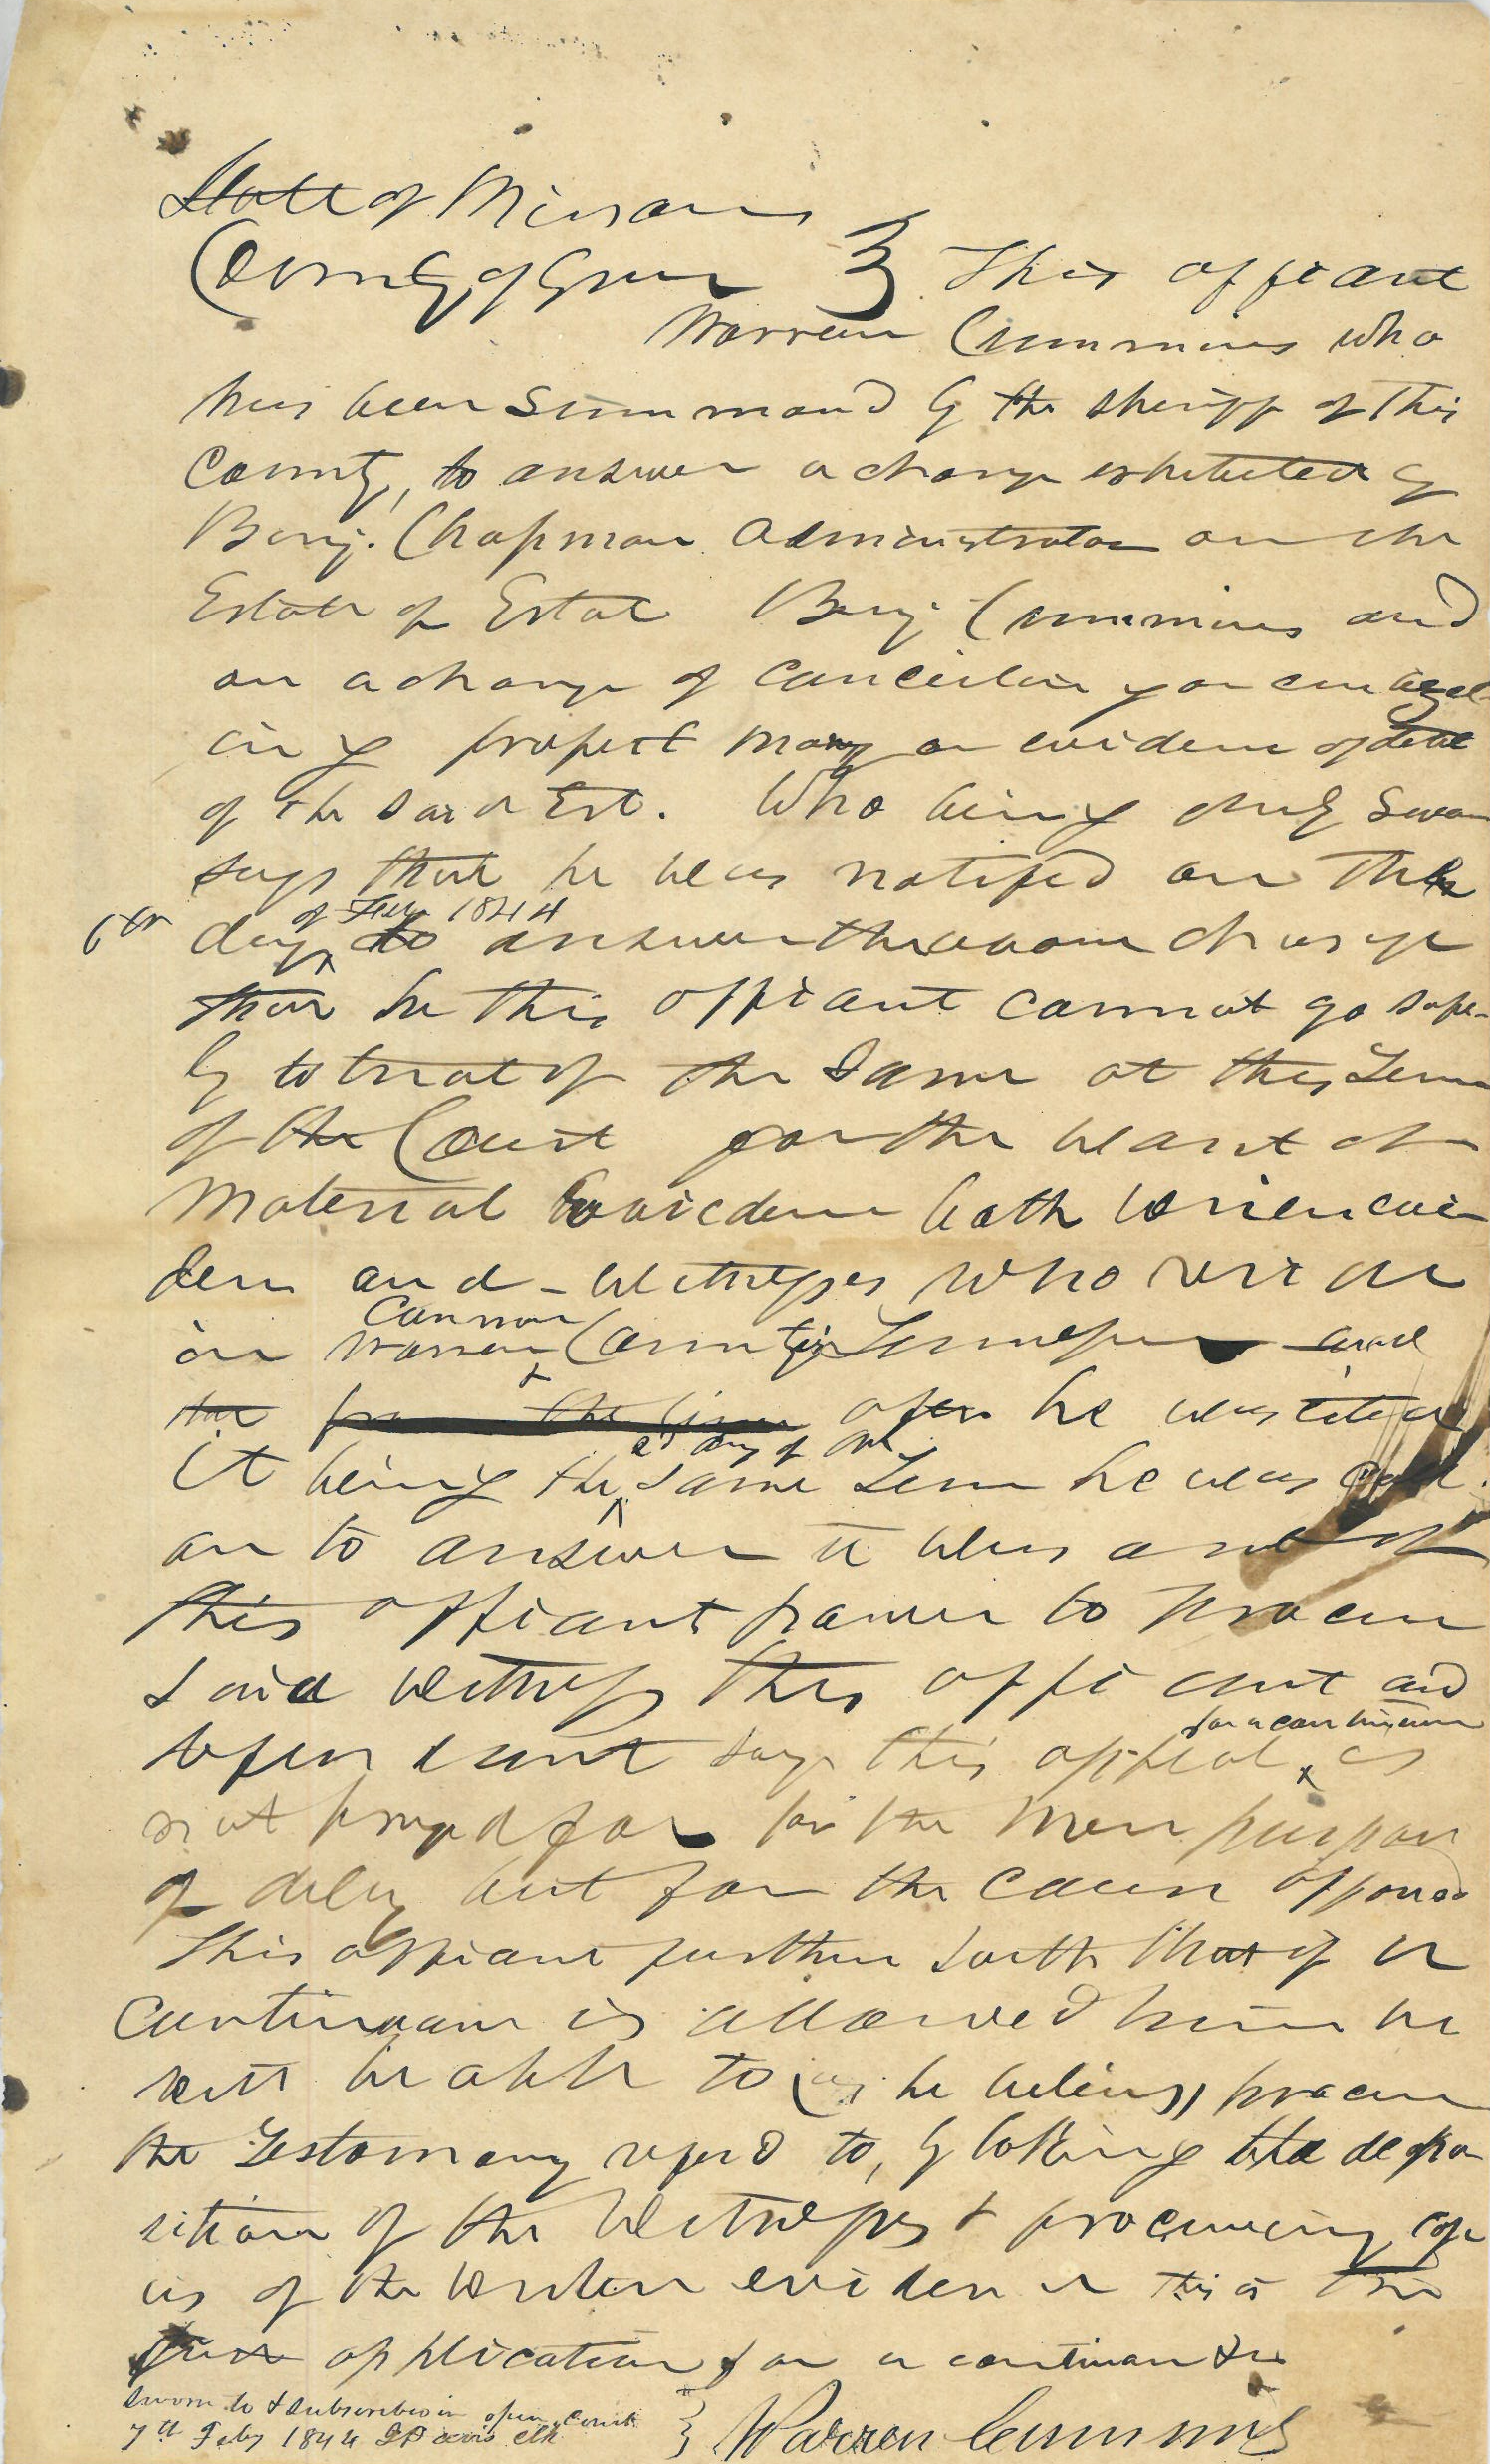 State of Missouri
County of Green } This affiant
Warren Cummins who
has been summond by the sheriff of this
County, to answer a charge exhibited by
Benj. Chapman administrator on the
Estate of Estate Benj Cummins and
on a charge of concealin or embezel-
ing property mony or evidence of debt
of the said Est. Who being duly sworn
says that he was notified on the
6th day of Feby 1844 to answer the above charge
that he this affiant cannot go safe-
ly to trial of the same at this Term
of the Court for the want of
material evidence both writen evi
dence and witnesses who reside
in Warren Cannon County in Tennessee and
the from the time after he was cited
it being the 2d day of the same Term he was call
on to answer it was out of
this affiant power to procure
said witness this affiant and
defendant says this appeal for a continuance is
not prayed for for the mere purpose
of delay but for the cause afforsd
This affiant further saith that if a
continuance is allowed him he
will be able to (as he believes) procure
the Testamony referd to, by taking the depo
sition of the witnesses & procureing cop
ies of the writen evidence this is the
first application for a continuance
Sworn to & subscribed in open court
7th Feby 1844 Davis clk } Warren Cummins